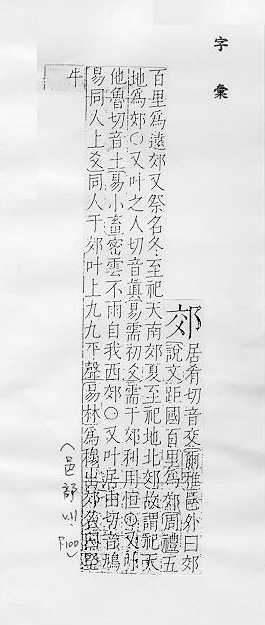 字彙
郊
居肴切音交爾雅邑外曰郊
說文距國百里爲郊周禮五
百里爲遠郊又祭名冬至祀天南郊夏至祀地北郊故謂祀天
地爲郊○又叶之人切音眞易需初爻需于郊利用恒○又
他魯切音土易小畜密雲不雨自我西郊○又叶居由切音鳩
易同人上爻同人于郊叶上九九平聲易林爲出郊
牛
(邑部 V.11 P100)